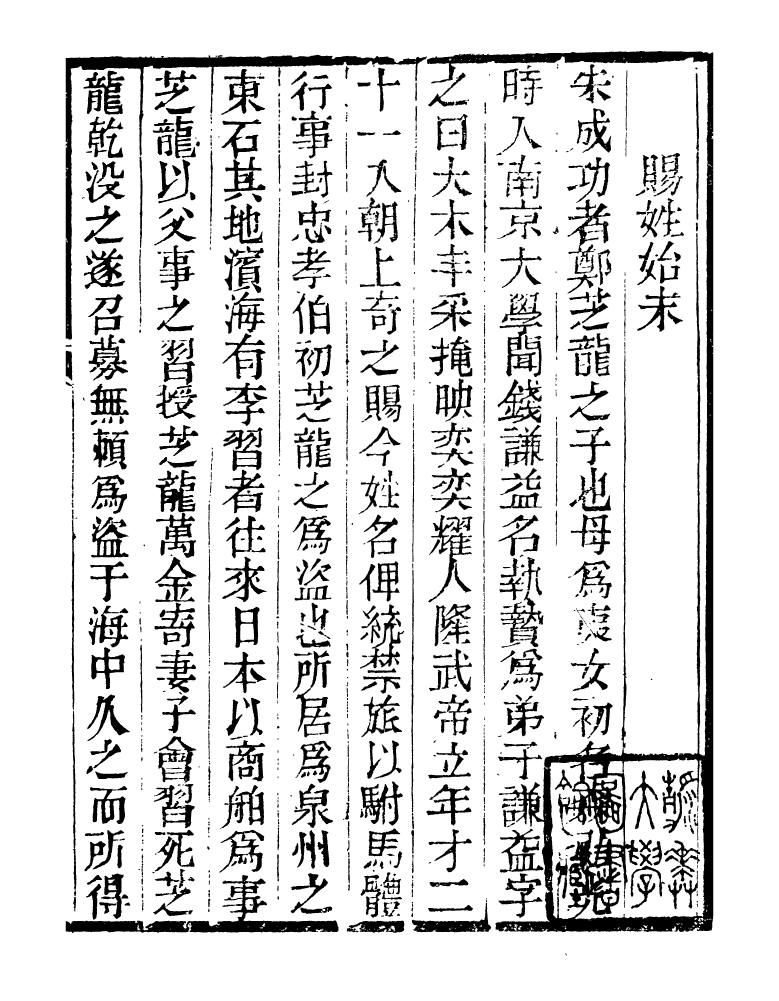 賜姓始末
朱成功者鄭芝龍之子也母爲夷女初名
時入南京大學聞錢謙益名執贄爲弟子謙益字
之曰大木丰采掩映奕奕耀人隆武帝立年才二
十一入朝上奇之賜今姓名俾統禁旅以駙馬體
行事封忠孝伯初芝龍之爲盜也所居爲泉州之
東石其地濱海有李習者往來日本以商舶爲事
芝龍以父事之習授芝龍萬金寄妻子會習死芝
龍乾没之遂召募無賴爲盜于海中久之而所得
大學